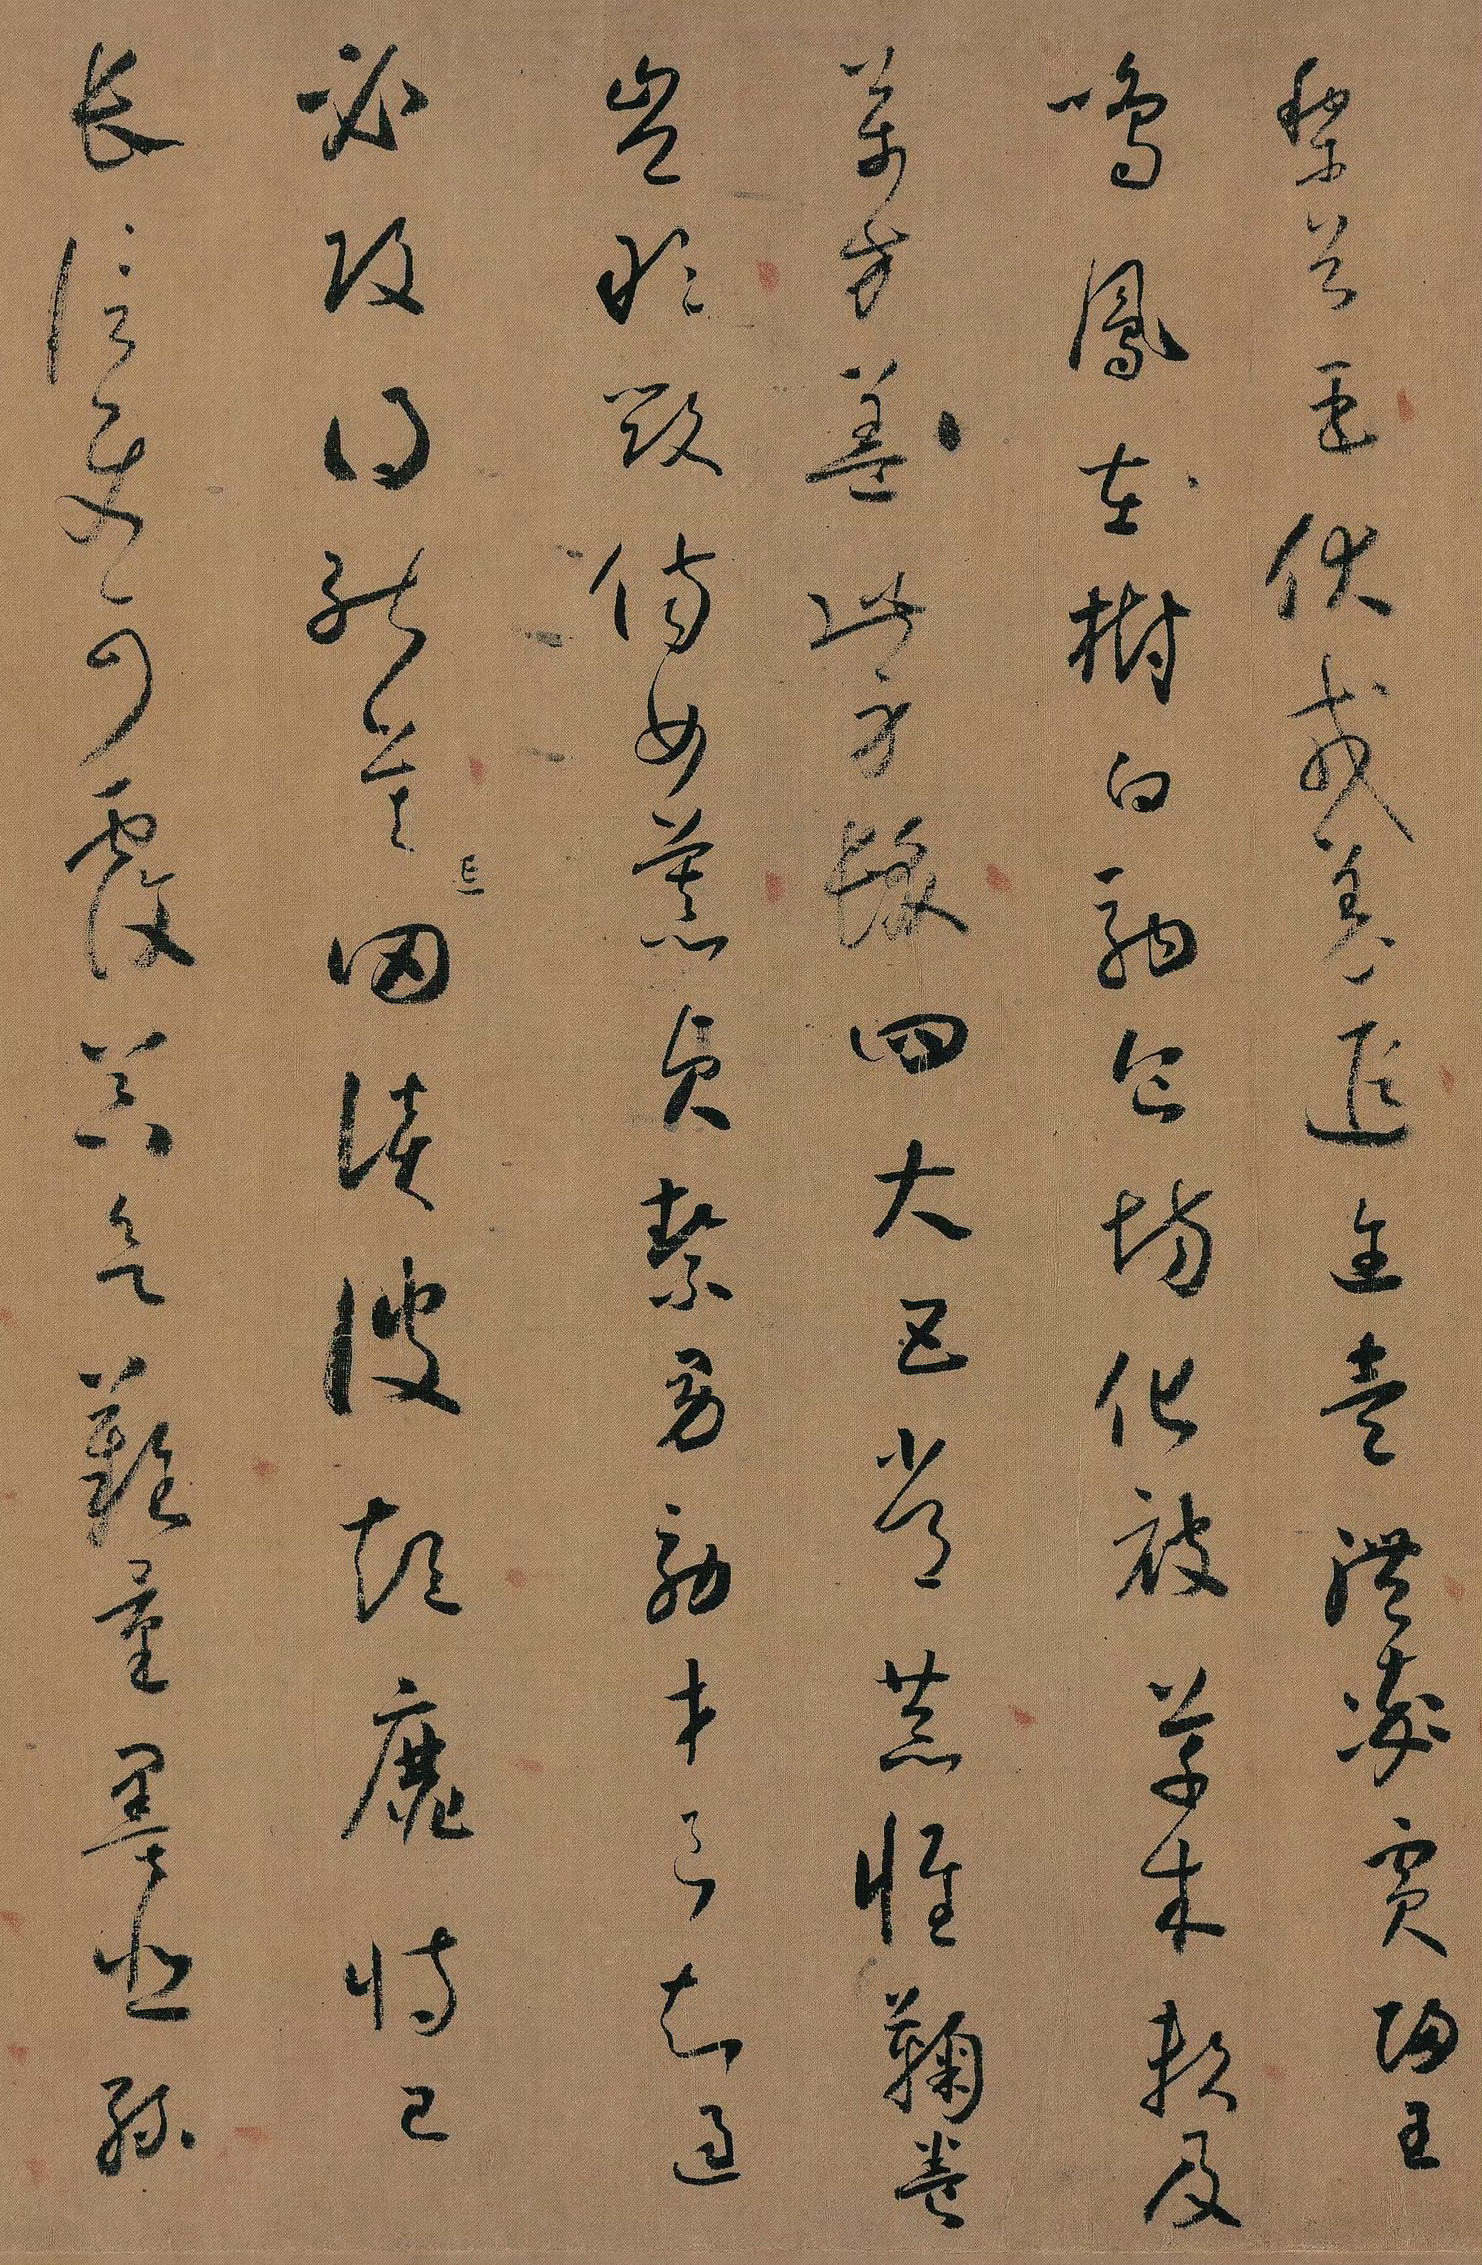 黎首臣伏戎羌遐迩壹體率賓歸王
鳴鳳在樹白駒食場化被草木賴及
萬方蓋此身髮四大五常恭惟鞠養
豈敢毀傷女慕貞絜男效才良知過
必改得能莫忘罔談彼短靡恃己
長信使可覆器欲難量墨悲絲